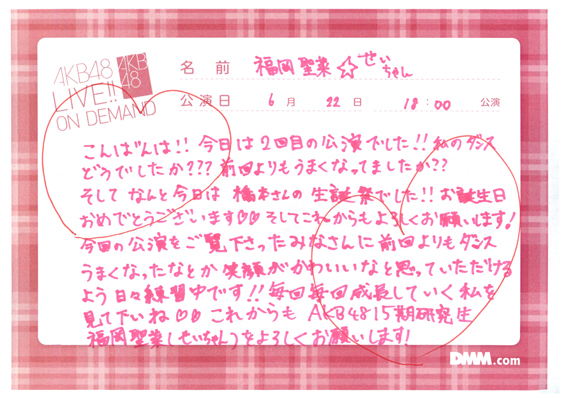 AKB48
LIVE!!
ON DEMAND
AKB
48
名前 福岡聖菜☆せいちゃん
公演日 6月 22日 18:00 公演
こんばんは!! 今日は2回目の公演でした!! 私のダンス
どうでしたか??? 前回よりもうまくなってましたか??
そして なんと今日は 橋本さんの生誕祭でした!! お誕生日
おめでとうございます♡♡ そしてこれからもよろしくお願いします!
今回の公演をご覧下さったみなさんに前回よりもダンス
うまくなったなとか笑顔がかわいいなと思っていただける
よう日々練習中です!! 毎回毎回成長していく私を
見て下さいね♡♡ これからも AKB4815期研究生
福岡聖菜(せいちゃん)をよろしくお願いします!
DMM.com